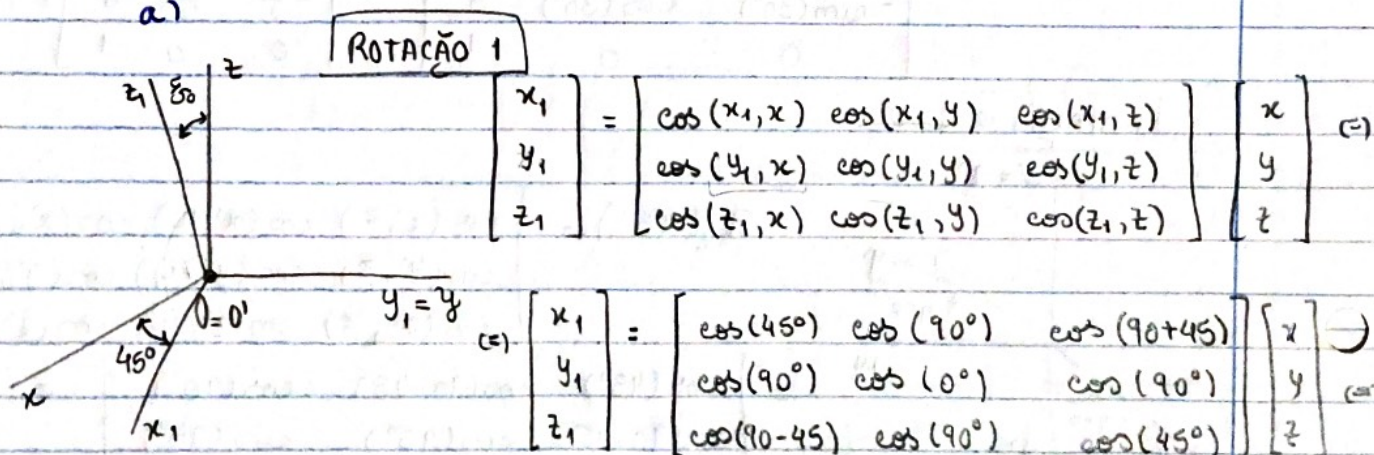 a)
ROTAÇÃO 1
z
z₁
x₁
y₁
z₁
=
cos(x₁,x) cos(x₁,y) cos(x₁,z)
cos(y₁,x) cos(y₁,y) cos(y₁,z)
cos(z₁,x) cos(z₁,y) cos(z₁,z)
x
y
z
(=)
0=0'
y₁=y
45°
x
x₁
(=)
x₁
y₁
z₁
=
cos(45°) cos(90°) cos(90+45)
cos(90°) cos(0°) cos(90°)
cos(90-45) cos(90°) cos(45°)
x
y
z
(=